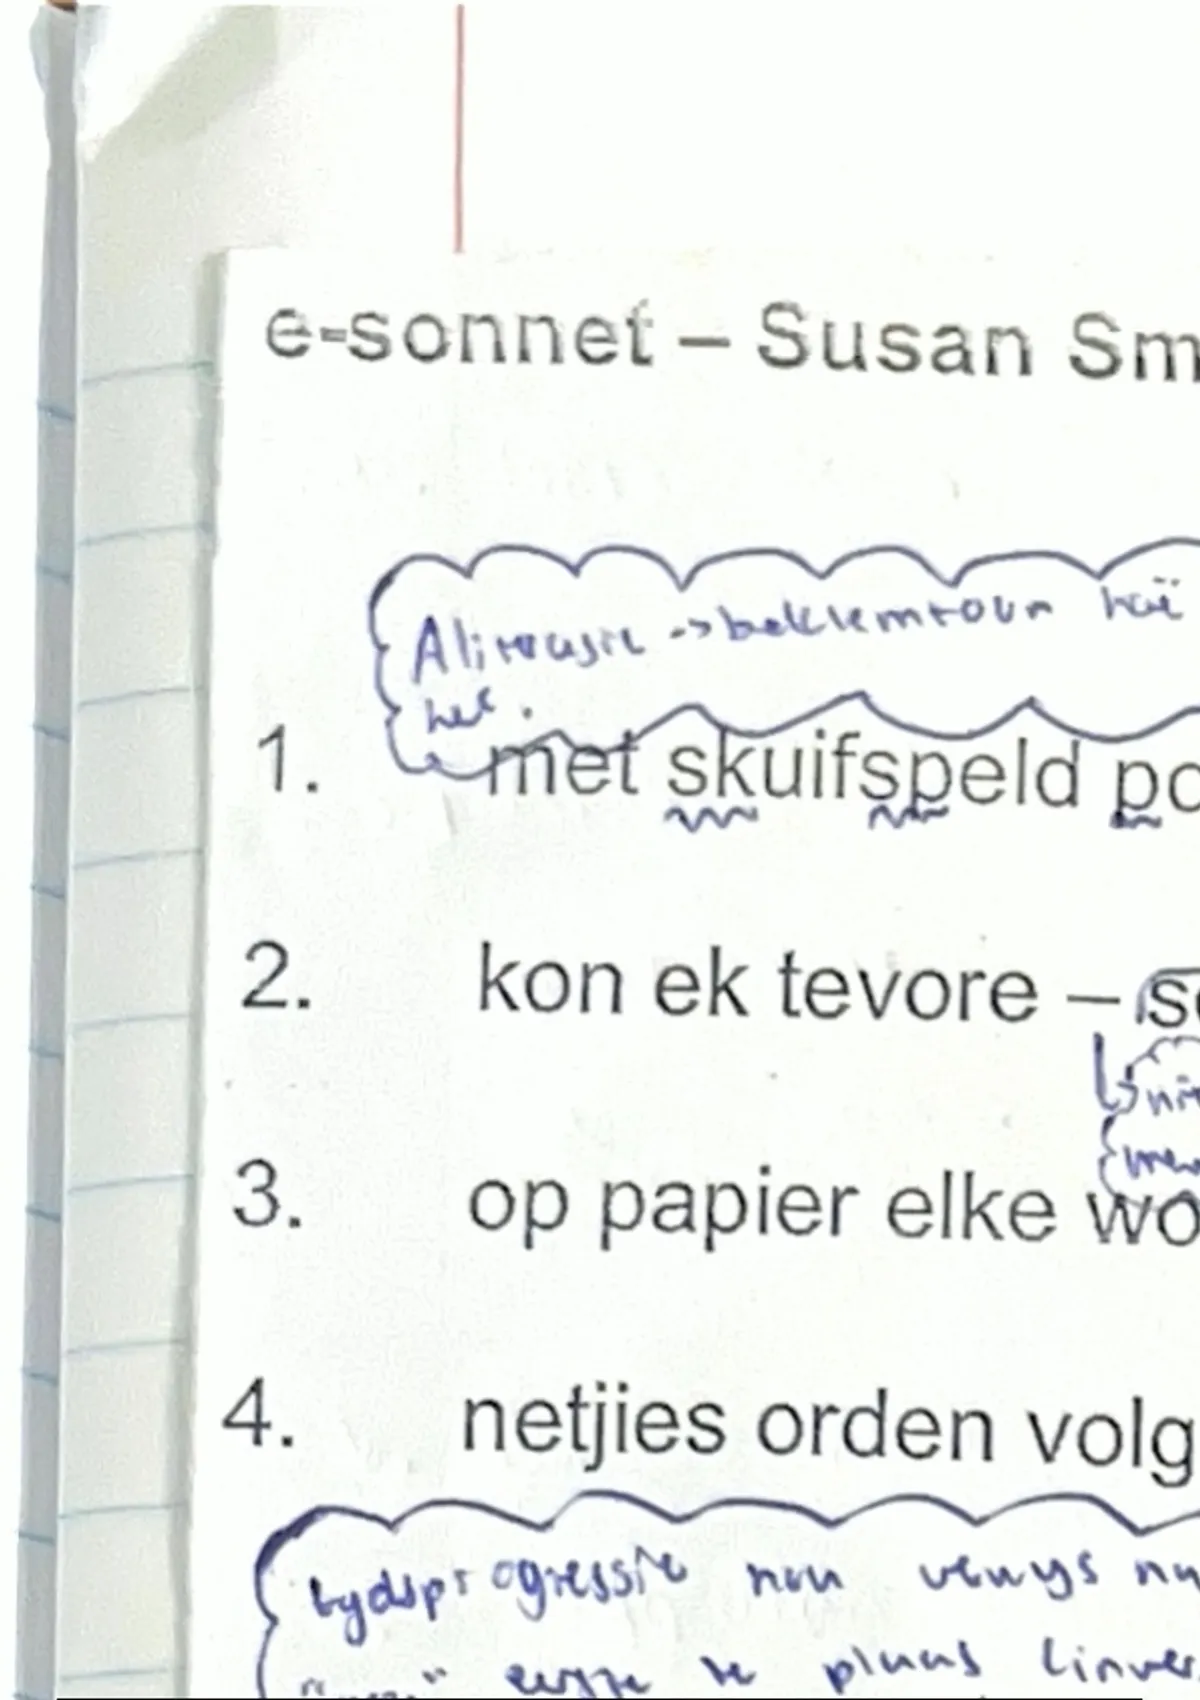 e-sonnet – Susan Sm
Alitrasie -> beklemtoon hoë
het.
1. met skuifspeld po
2. kon ek tevore – so
3. op papier elke wo
4. netjies orden volg
tydsprogressie non verwys
te plaas